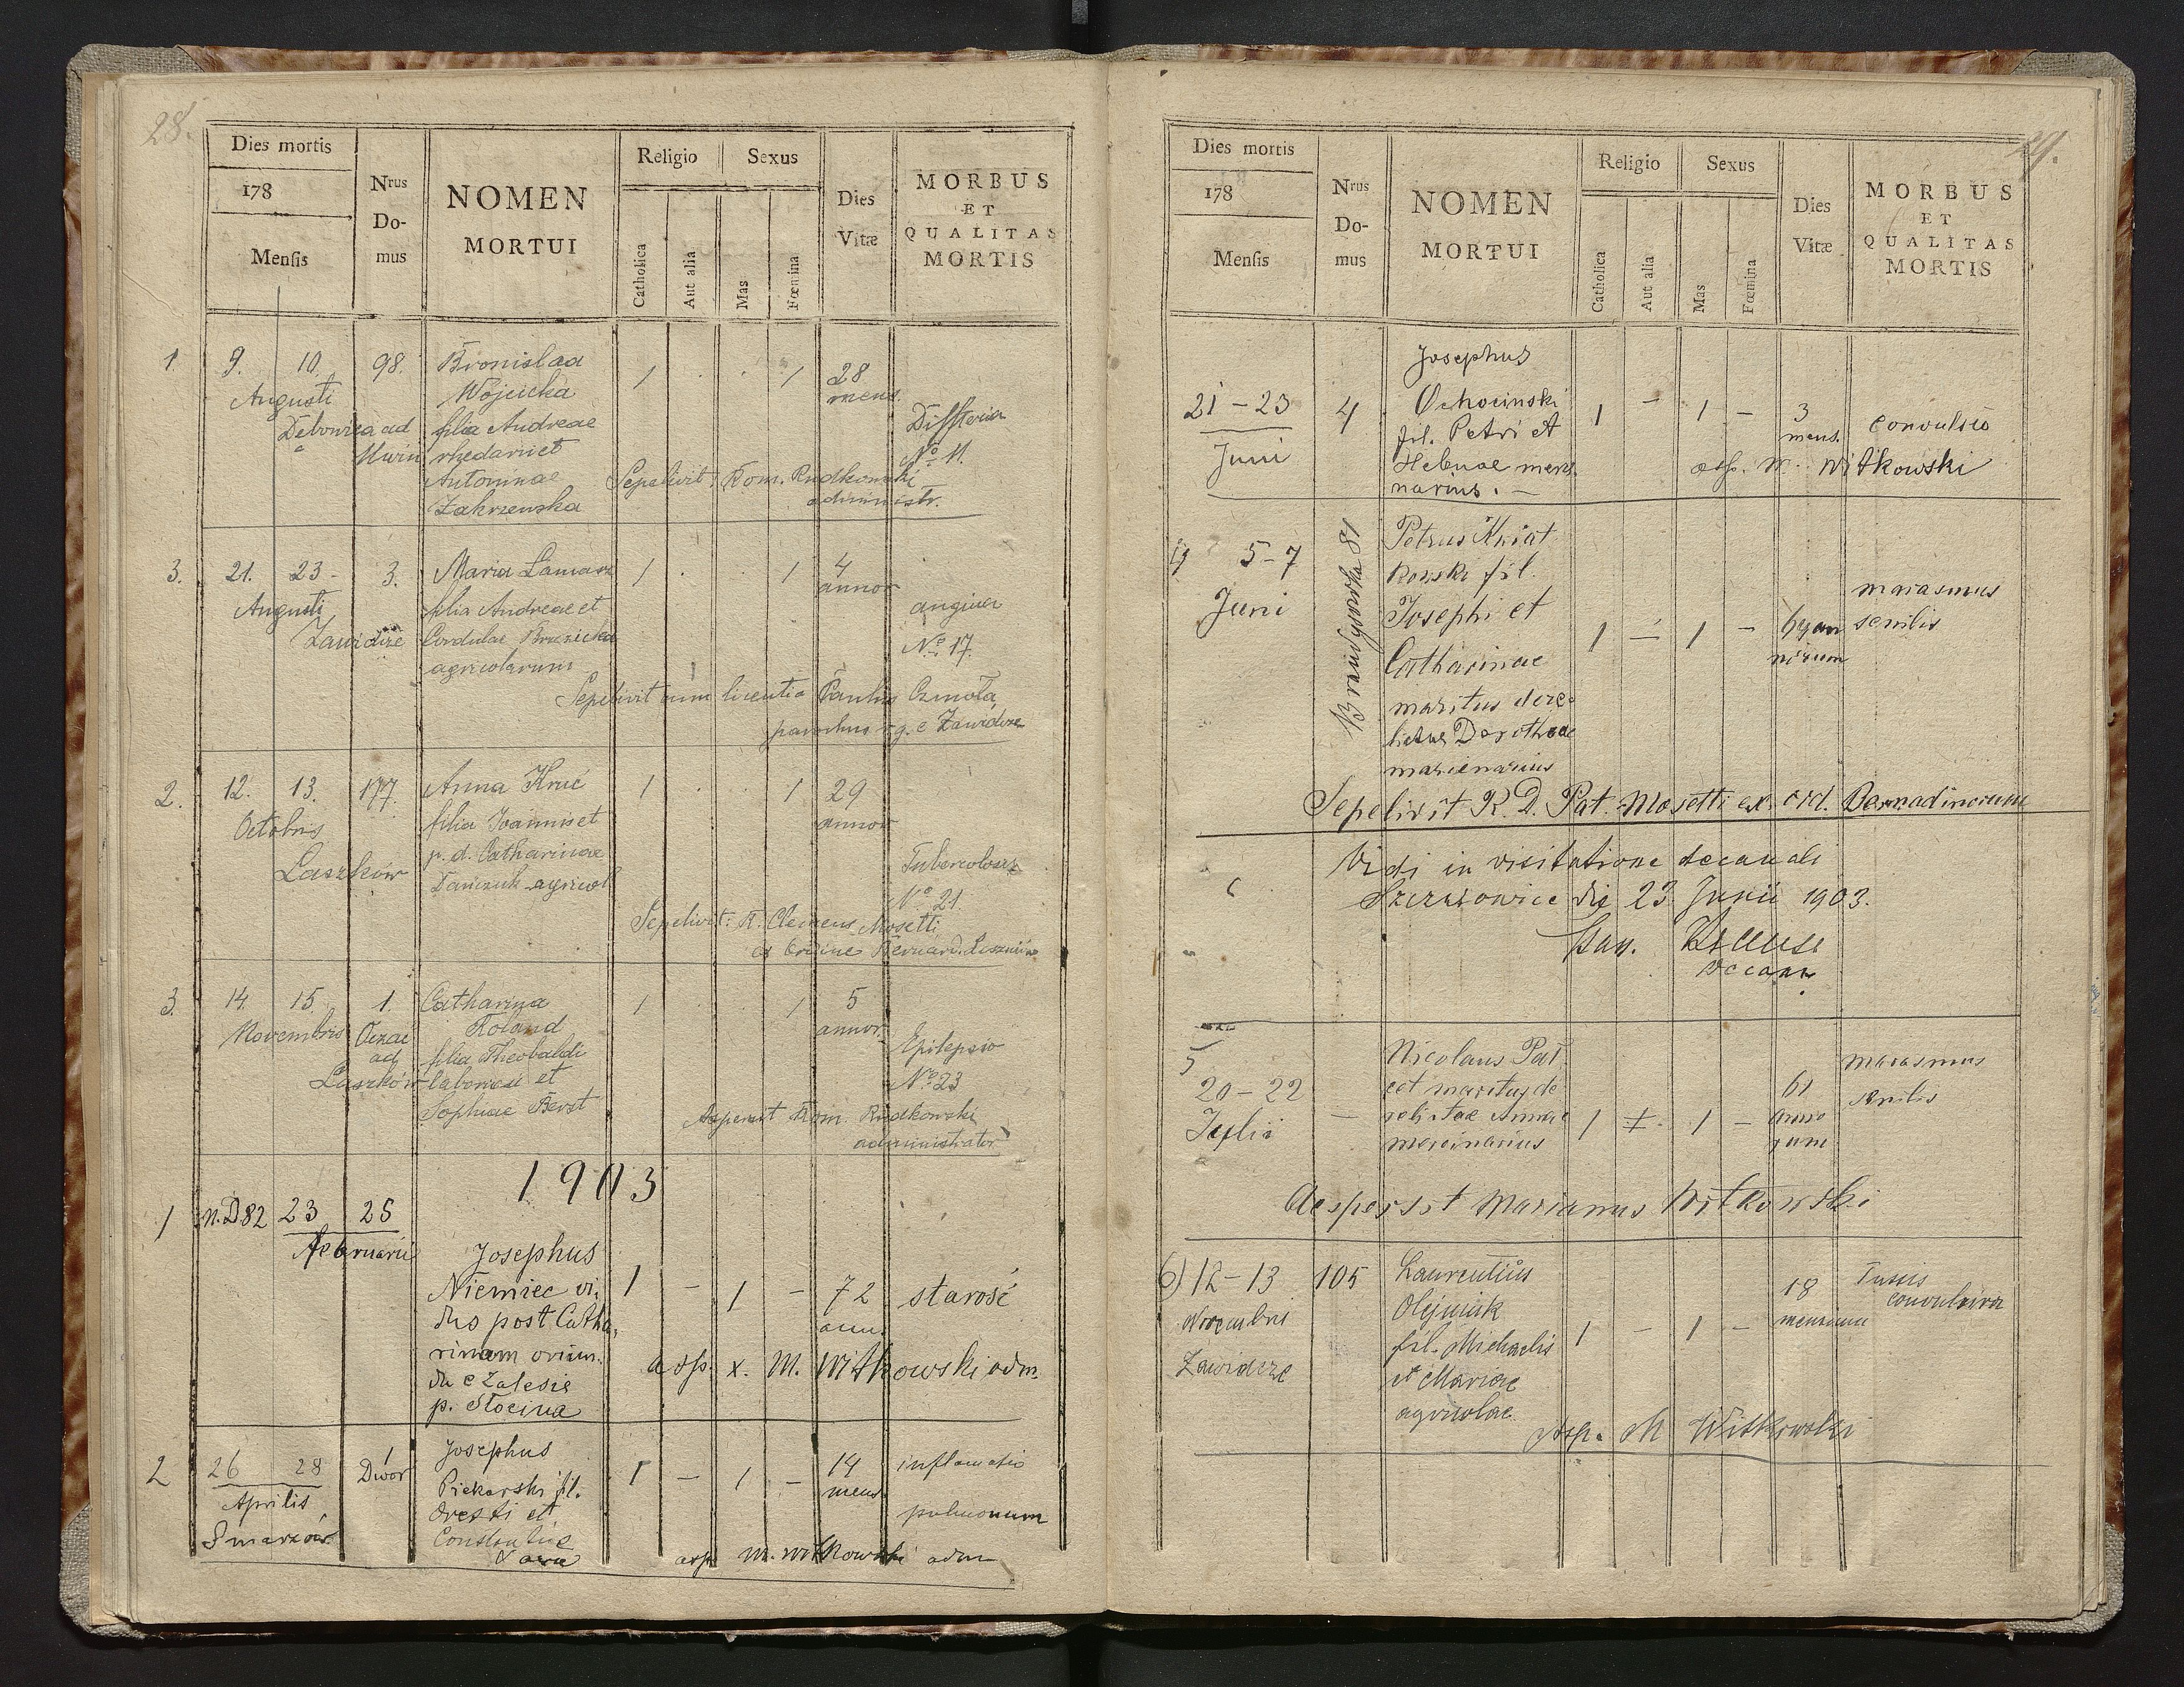 28.
Dies mortis
178
Mensis
Nrus
Do-
mus
NOMEN
MORTUI
Religio
Sexus
Catholica
Aut alia
Mas
Fœmina
Dies
Vitæ
MORBUS
ET
QUALITAS
MORTIS
1 9. 10. 98. Bronislaa 1 . . 1 28
Augusti Wójcicka mens.
Debowica ad filia Andreae Diffteria
rhedarii et No 11.
Antoninae Sepelivit Rom. Rudkowski
Zakrzewska administr.
3. 21. 23 - 3. Maria Lamasz 1 . . 1 4
Augusti filia Andreae et annor
Zawidcze Cordulae angina
agricolarum No 17.
Sepelivit cum licentia Paulus Czmola
parochus r. g. e Zawidcze
2. 12. 13. 177. Anna Kruć 1 . . 1 29
Octobris filia Joannis et annor
p. d. Catharinae
Laszków agricol Tuberculosis
No 21.
Sepelivit: R. Clemens Mosetti
ex Ordine Bernard. Leszniów
3. 14. 15. 1. Catharina 1 . . 1 5
Novembris Roland annor.
ad filia Theobaldi Epilepsio
Laszków et No 23
Sophiae Berst
Aspersit Rom. Rudkowski
administrator
1903
1 n.D 82 23 25
Februarii Josephus
Niemiec vi, 1 - 1 - 72 starość
duo post Catha, ann.
rinam oriun.
du e Zalesie asp. x. M. Witkowski adm.
p. Słocina
2 26 28 Dwór Josephus 1 - 1 - 14 inflamatio
Aprilis Piekarski fil. mens.
Oresti et pulmonum
Smarzów
asp. M. Witkowski adm
29.
Dies mortis
178
Mensis
Nrus
Do-
mus
NOMEN
MORTUI
Religio
Sexus
Catholica
Aut alia
Mas
Fœmina
Dies
Vitæ
MORBUS
ET
QUALITAS
MORTIS
Josephus
21 - 23 4 Ochocinski 1 - 1 - 3 convulsio
Juni fil. Petri et mens.
Helenae merce
narius. - asp. M. Witkowski
4) 5-7 Petrus Kwiat
kowski fil. marasmus
Juni Josephi et 1 - 1 - senilis
Catharinae
maritus dere-
lictus Dorotheae
Sepelivit R. D. Pat. Mosetti ex ord. Bernadinorum
Vidi in visitatione decanali
Szczurowice die 23 Junii 1903.
decan
5 Nicolaus Pat marasmus
20 - 22 maritus de 61 senilis
Julii - relictae Annae 1 - 1 - anno
mercinarius rum
Aspersit Marianus Witkowski
6) 12 - 13 105 Laurentius 18 Tussis
Novembri Olejniuk mensium convulsiva
Zawidcze fil. Michaelis 1 - 1 -
et Mariae
agricolae
Asp. M Witkowski